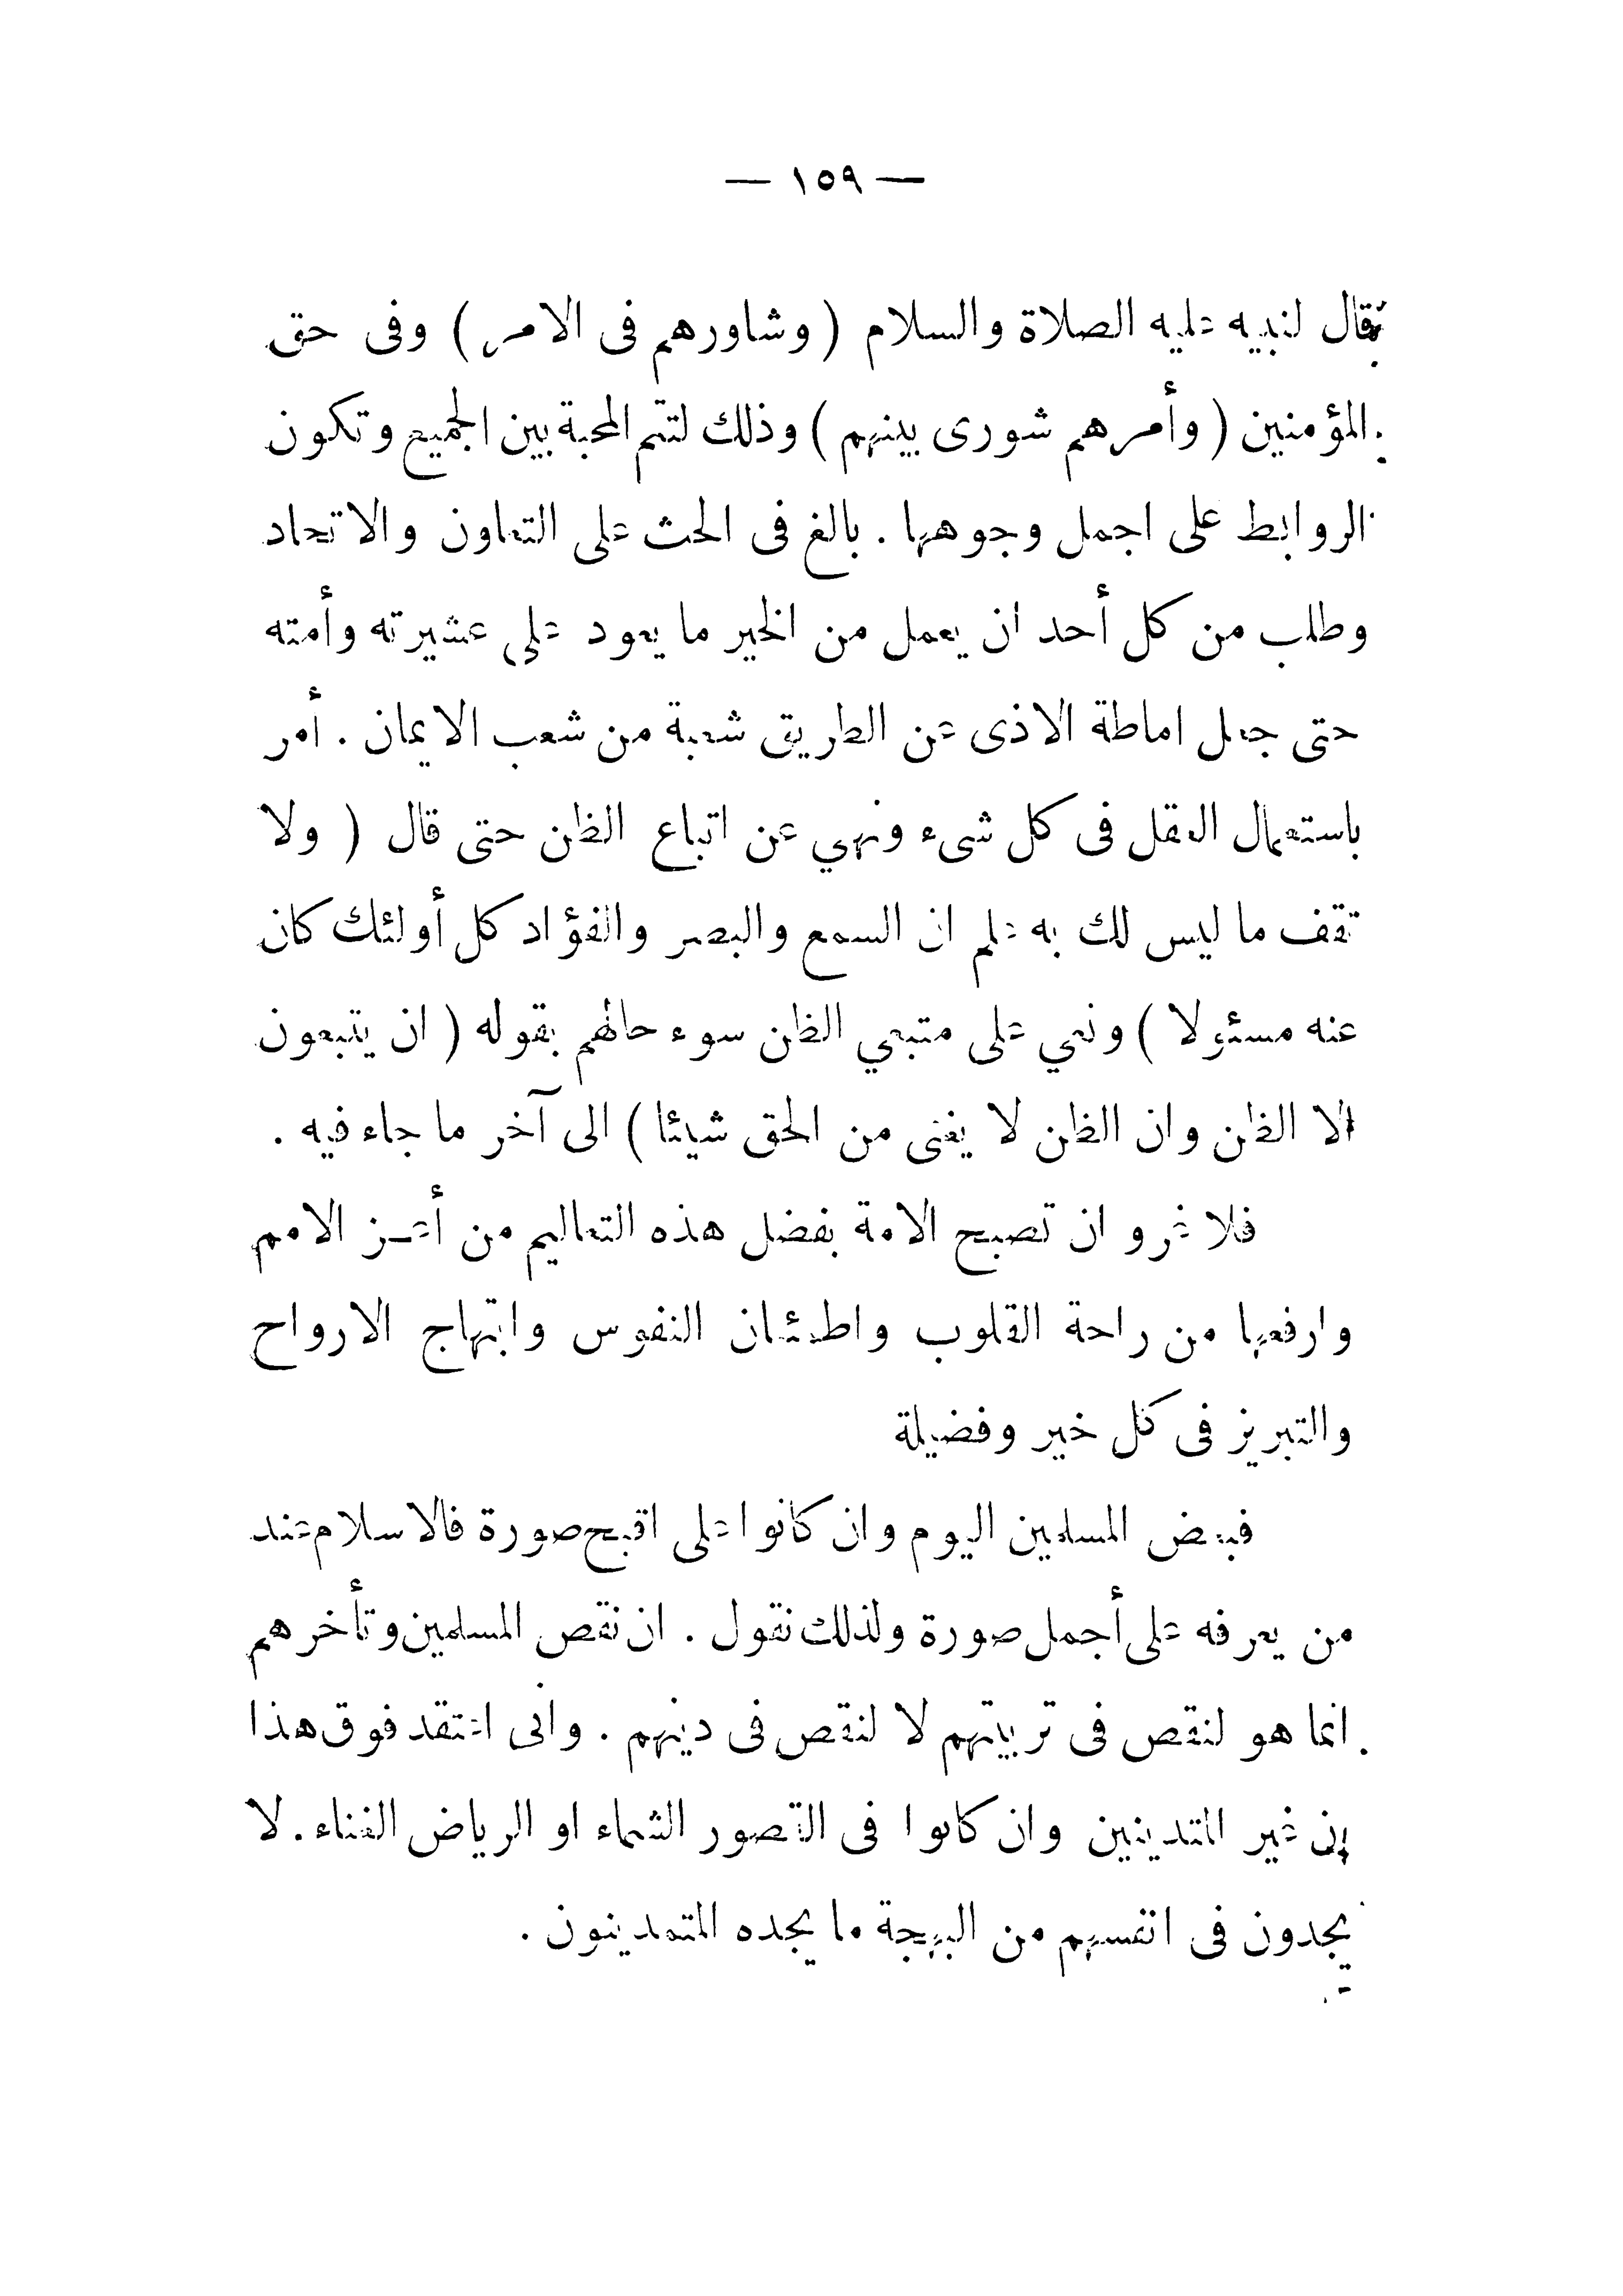 — ١٥٩ —
فقال لنبيه عليه الصلاة والسلام ( وشاورهم فى الامر ) وفى حق
المؤمنين ( وأمرهم شورى بينهم ) وذلك لتتم المحبة بين الجميع وتكون
الروابط على اجمل وجوهها . بالغ فى الحث على التعاون والاتحاد
وطلب من كل أحد ان يعمل من الخير ما يعود على عشيرته وأمته
حتى جعل اماطة الاذى عن الطريق شعبة من شعب الايمان . أمر
باستعمال العقل فى كل شىء ونهي عن اتباع الظن حتى قال ( ولا
تقف ما ليس لك به علم ان السمع والبصر والفؤاد كل أولئك كان
عنه مسئولا ) ونعي على متبعي الظن سوء حالهم بقوله ( ان يتبعون
الا الظن وان الظن لا يغنى من الحق شيئا ) الى آخر ما جاء فيه .
فلا غرو ان تصبح الامة بفضل هذه التعاليم من أعــز الامم
وارفعها من راحة القلوب واطمئنان النفوس وابتهاج الارواح
والتبريز فى كل خير وفضيلة
فبعض المسلمين اليوم وان كانوا على اقبح صورة فالاسلام عند
من يعرفه على أجمل صورة ولذلك نقول . ان نقص المسلمين وتأخرهم
انما هو لنقص فى تربيتهم لا لنقص فى دينهم . وانى اعتقد فوق هذا
إن غير المتدينين وان كانوا فى القصور الشماء او الرياض الغناء . لا
يجدون فى انفسهم من البهجة ما يجده المتمدينون .